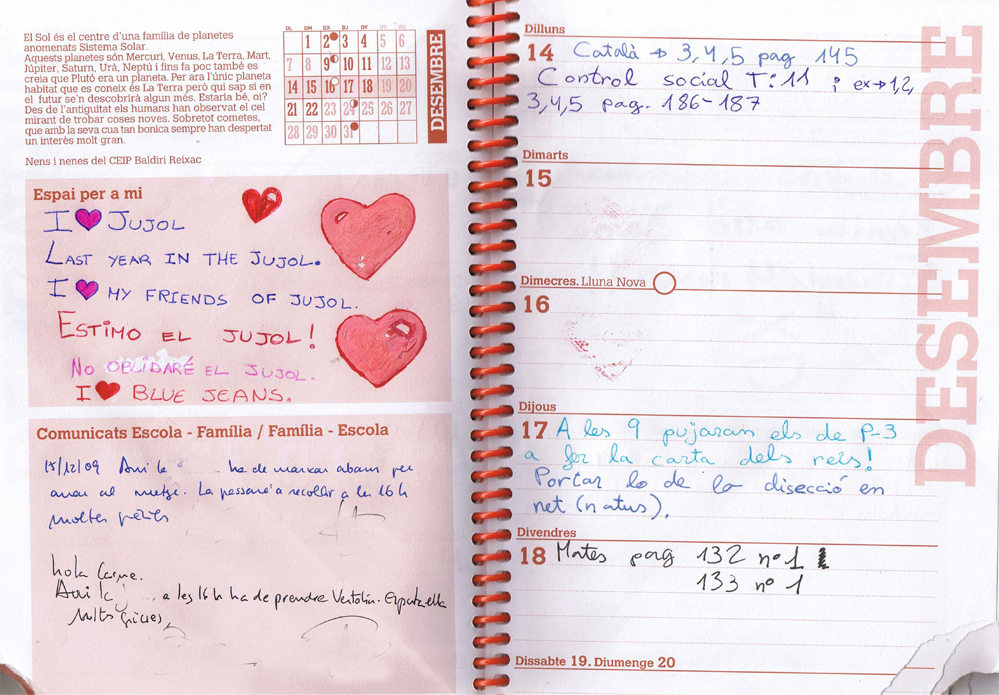 El Sol és el centre d'una família de planetes
anomenats Sistema Solar.
Aquests planetes són Mercuri, Venus, La Terra, Mart,
Júpiter, Saturn, Urà, Neptú i fins fa poc també es
creia que Plutó era un planeta. Per ara l'únic planeta
habitat que es coneix és La Terra però qui sap si en
el futur se'n descobrirà algun més. Estaria bé, oi?
Des de l'antiguitat els humans han observat el cel
mirant de trobar coses noves. Sobretot cometes,
que amb la seva cua tan bonica sempre han despertat
un interès molt gran.
Nens i nenes del CEIP Baldiri Reixac
DL DM DX DJ DV DS DG
1 2 3 4 5 6
7 8 9 10 11 12 13
14 15 16 17 18 19 20
21 22 23 24 25 26 27
28 29 30 31
DESEMBRE
Espai per a mi
I ♥ JUJOL
LAST YEAR IN THE JUJOL.
I ♥ MY FRIENDS OF JUJOL.
ESTIMO EL JUJOL!
NO OBLIDARÉ EL JUJOL.
I ♥ BLUE JEANS.
Comunicats Escola - Família / Família - Escola
15/12/09 Avui la ha de marxar abans per
anar al metge. La passaré a recollir a les 16 h
moltes gràcies
hola Carme.
Avui la a les 16 h ha de prendre Ventolin.
Moltes gràcies,
Dilluns
14 Català → 3,4,5 pag 145
Control social T:11 i ex→1,2,
3,4,5 pag. 186-187
Dimarts
15
Dimecres. Lluna Nova
16
Dijous
17 A les 9 pujaran els de P-3
a fer la carta dels reis!
Portar lo de la disecció en
net (natus).
Divendres
18 Mates pag 132 nº 1
133 nº 1
Dissabte 19. Diumenge 20
DESEMBRE